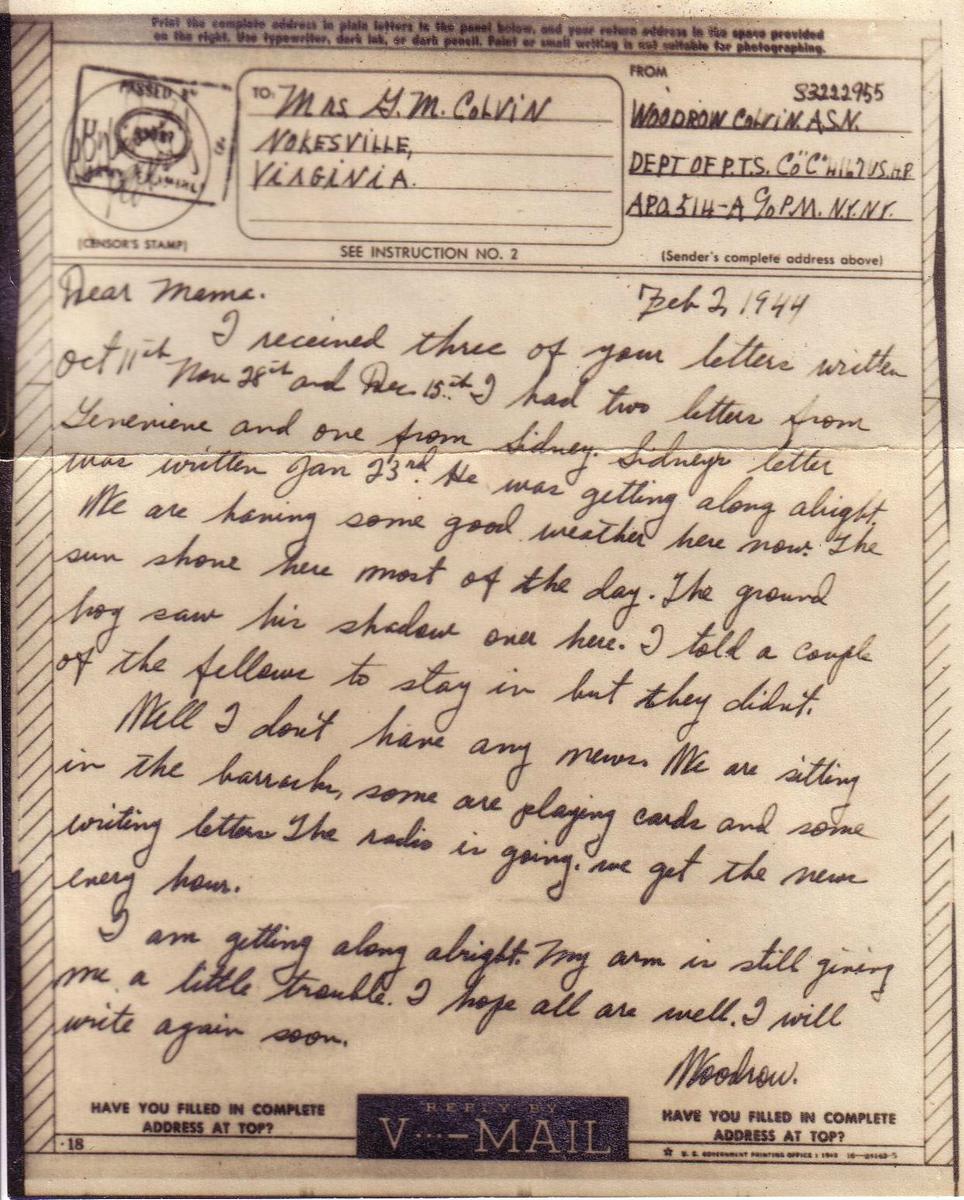 Print the complete address in plain letters in the panel below, and your return address in the space provided
on the right. Use typewriter, dark ink, or dark pencil. Faint or small writing is not suitable for photographing.
PASSED BY
ARMY EXAMINER
(CENSOR'S STAMP)
TO:
MRS G.M. COLVIN
NOKESVILLE,
VIRGINIA.
SEE INSTRUCTION NO. 2
FROM
33222955
WOODROW COLVIN. A.S.N.
DEPT OF P.T.S. Co "C"
A.P.O. 514-A % P.M. N.Y. N.Y.
(Sender's complete address above)
Dear Mama.
Feb 2, 1944
I received three of your letters written
Oct 11th Nov 28th and Dec 15th. I had two letters from
Genevieve and one from Sidney. Sidneys letter
was written Jan 23rd. He was getting along alright.
We are having some good weather here now. The
sun shone here most of the day. The ground
hog saw his shadow over here. I told a couple
of the fellows to stay in but they didn't.
Well I don't have any news. We are sitting
in the barracks, some are playing cards and some
writing letters. The radio is going. we get the news
every hour.
I am getting along alright. My arm is still giving
me a little trouble. I hope all are well. I will
write again soon.
Woodrow.
HAVE YOU FILLED IN COMPLETE
ADDRESS AT TOP?
REPLY BY
V···—MAIL
HAVE YOU FILLED IN COMPLETE
ADDRESS AT TOP?
·18
☆ U. S. GOVERNMENT PRINTING OFFICE : 1943